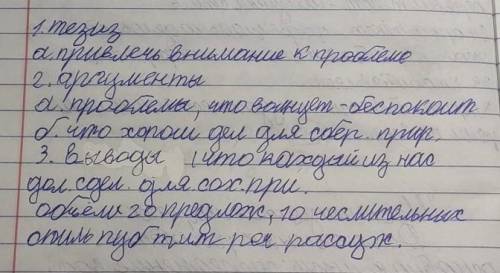 1. тезиз
а. привлечь внимание к проблеме
2. аргументы
а. проблемы, что волнует - обеспокоит
б. что хорош дел для сбер. прир.
3. выводы (что каждый из нас
дол. сдел. для сох. при.
объём 20 предлож, 10 числительных
стиль публ тип реч рассуж.